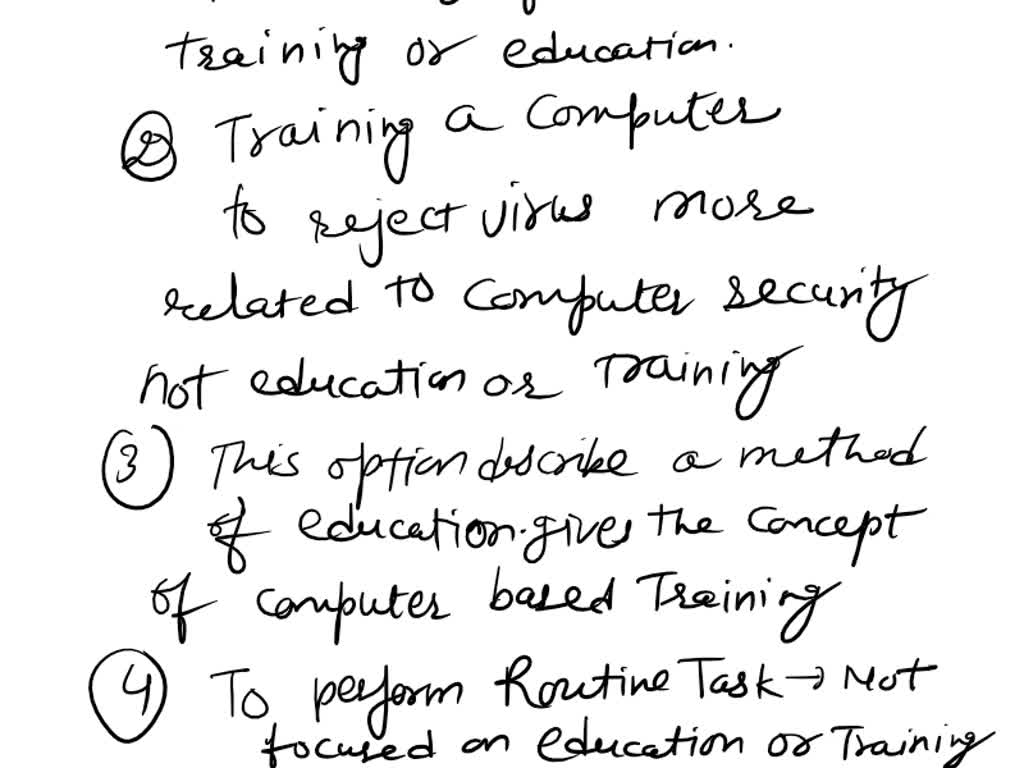 training or education.
② Training a computer
to reject virus more
related to computer security
not education or training
③ This option describe a method
of education. gives the concept
of computer based Training
④ To perform Routine Task → Not
focused on education or Training